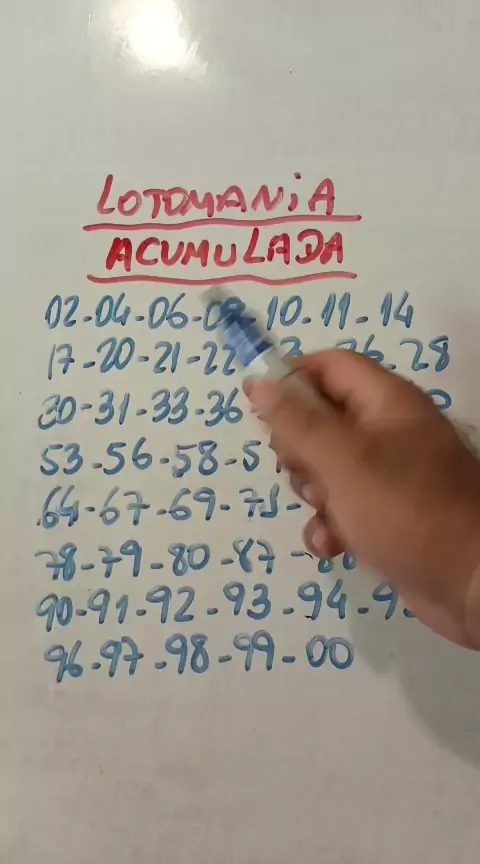 LOTOMANiA
ACUMULADA
02-04-06-08-10-11-14
17-20-21-22 26-28
30-31-33-36
53-56-58-5
64-67-69-71-
78-79-80-87-88
90-91-92-93-94-9
96-97-98-99-00